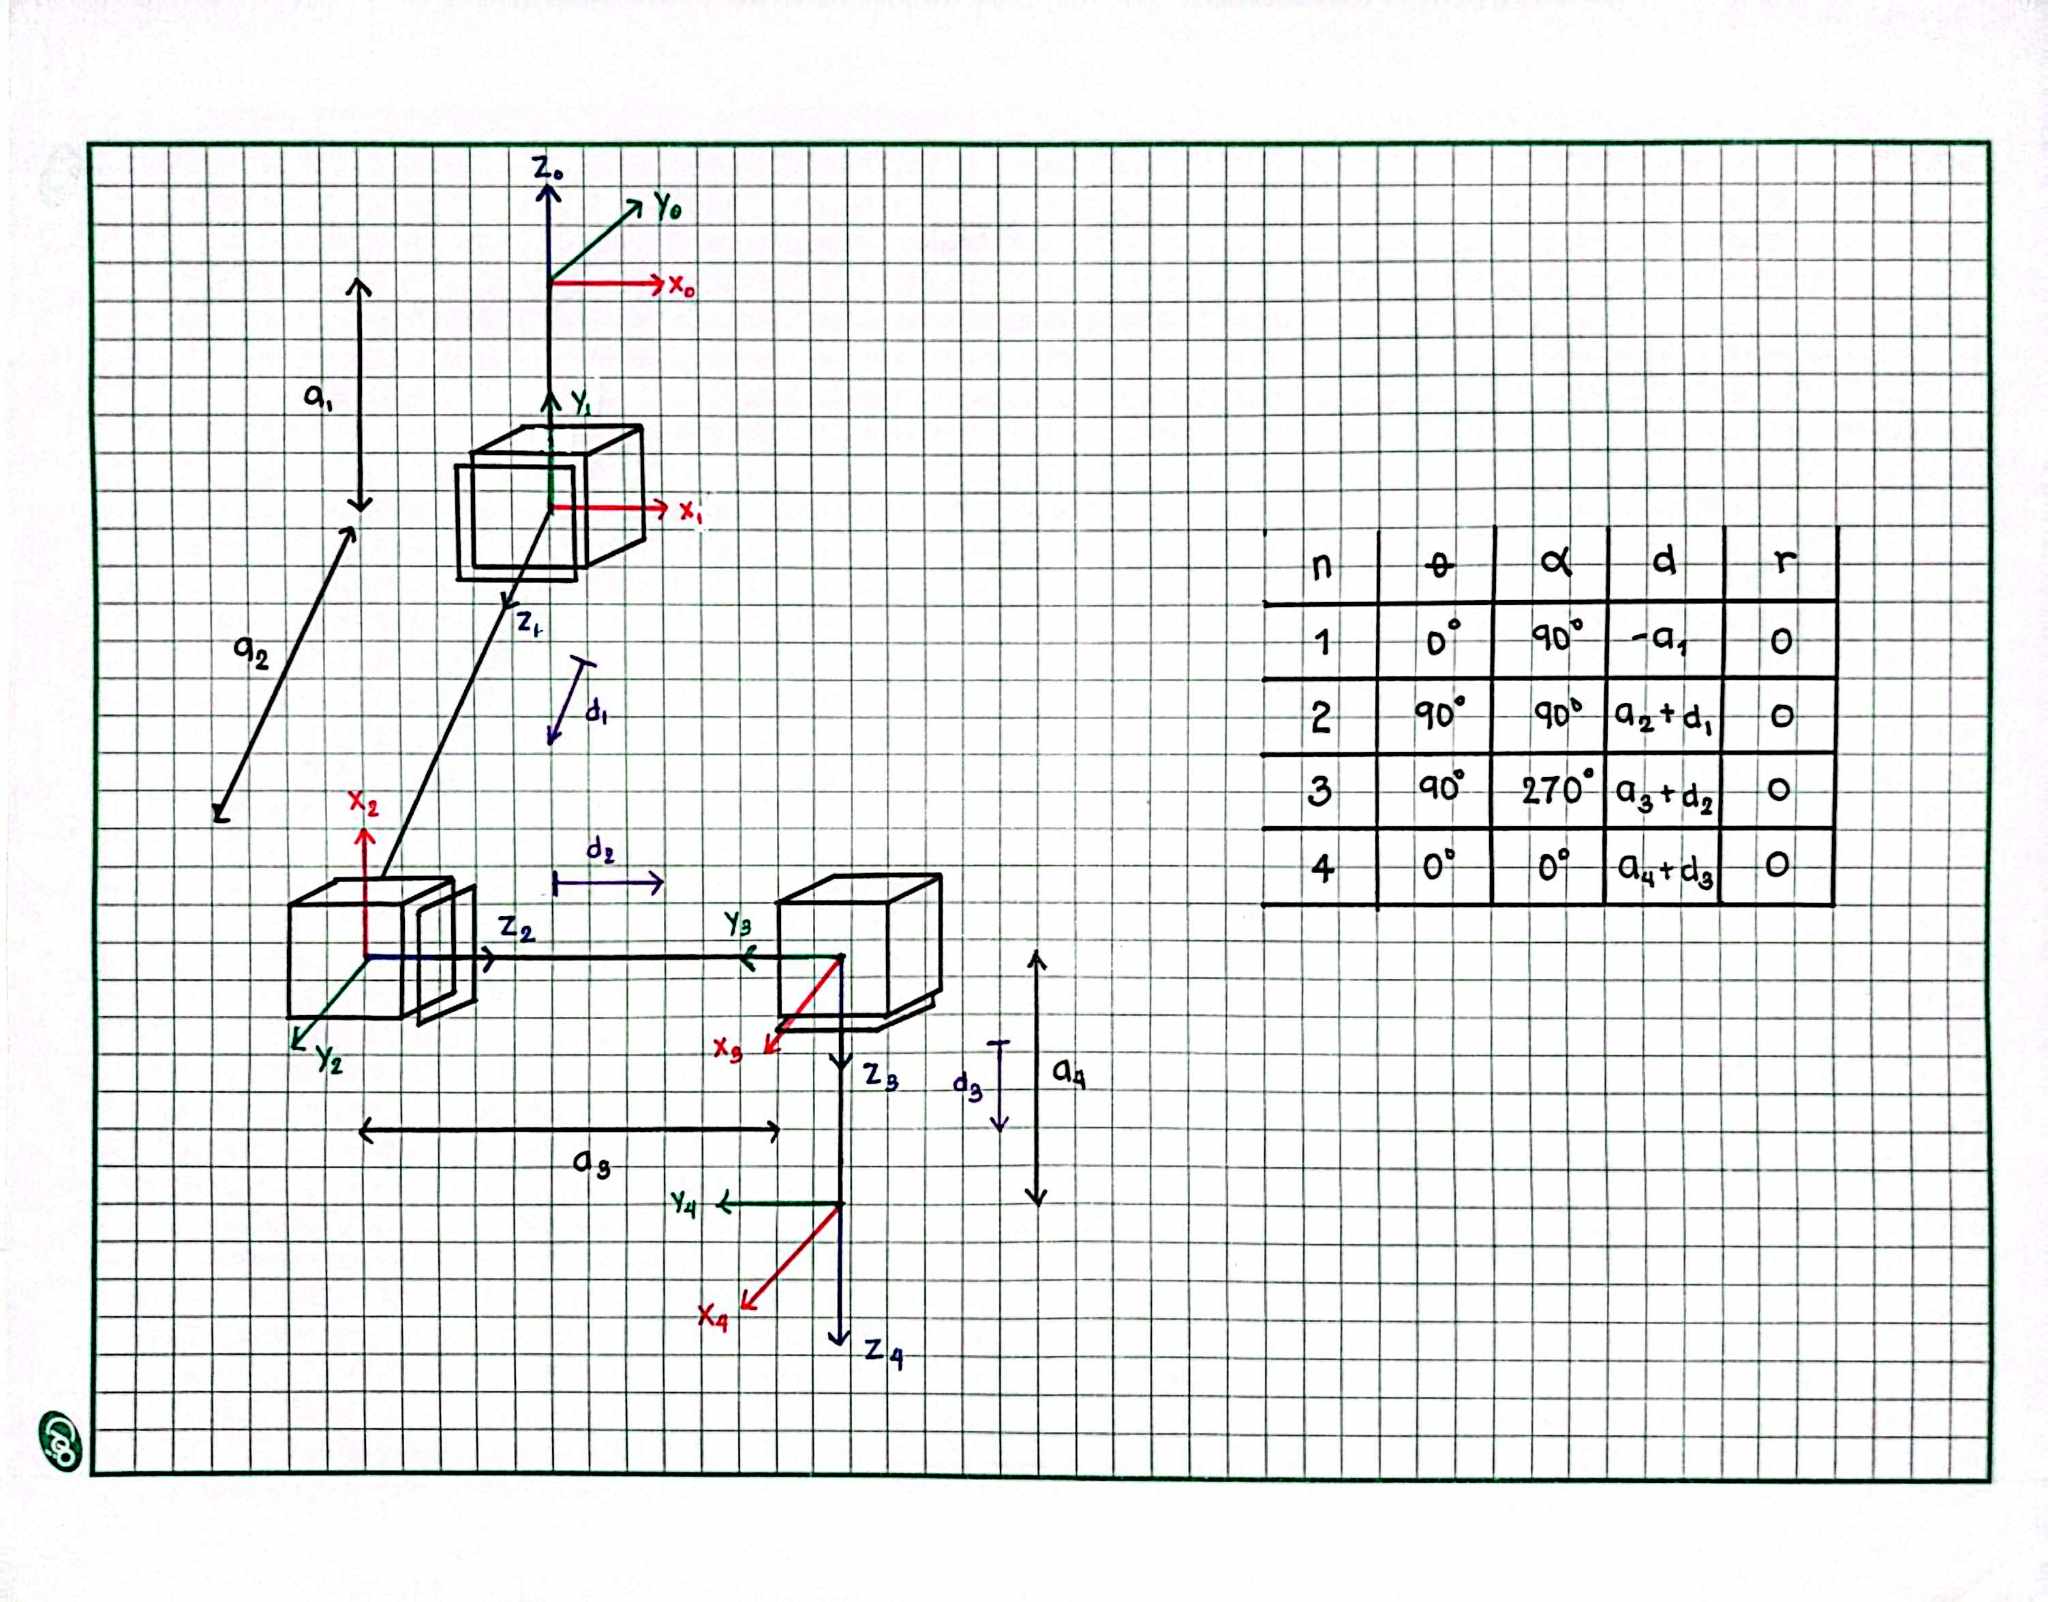 Z₀
Y₀
X₀
a₁
Y₁
X₁
Z₁
a₂
d₁
X₂
d₂
Z₂
Y₃
Y₂
X₃
Z₃
d₃
a₄
a₃
Y₄
X₄
Z₄
n θ α d r
1 0° 90° -a₁ 0
2 90° 90° a₂+d₁ 0
3 90° 270° a₃+d₂ 0
4 0° 0° a₄+d₃ 0